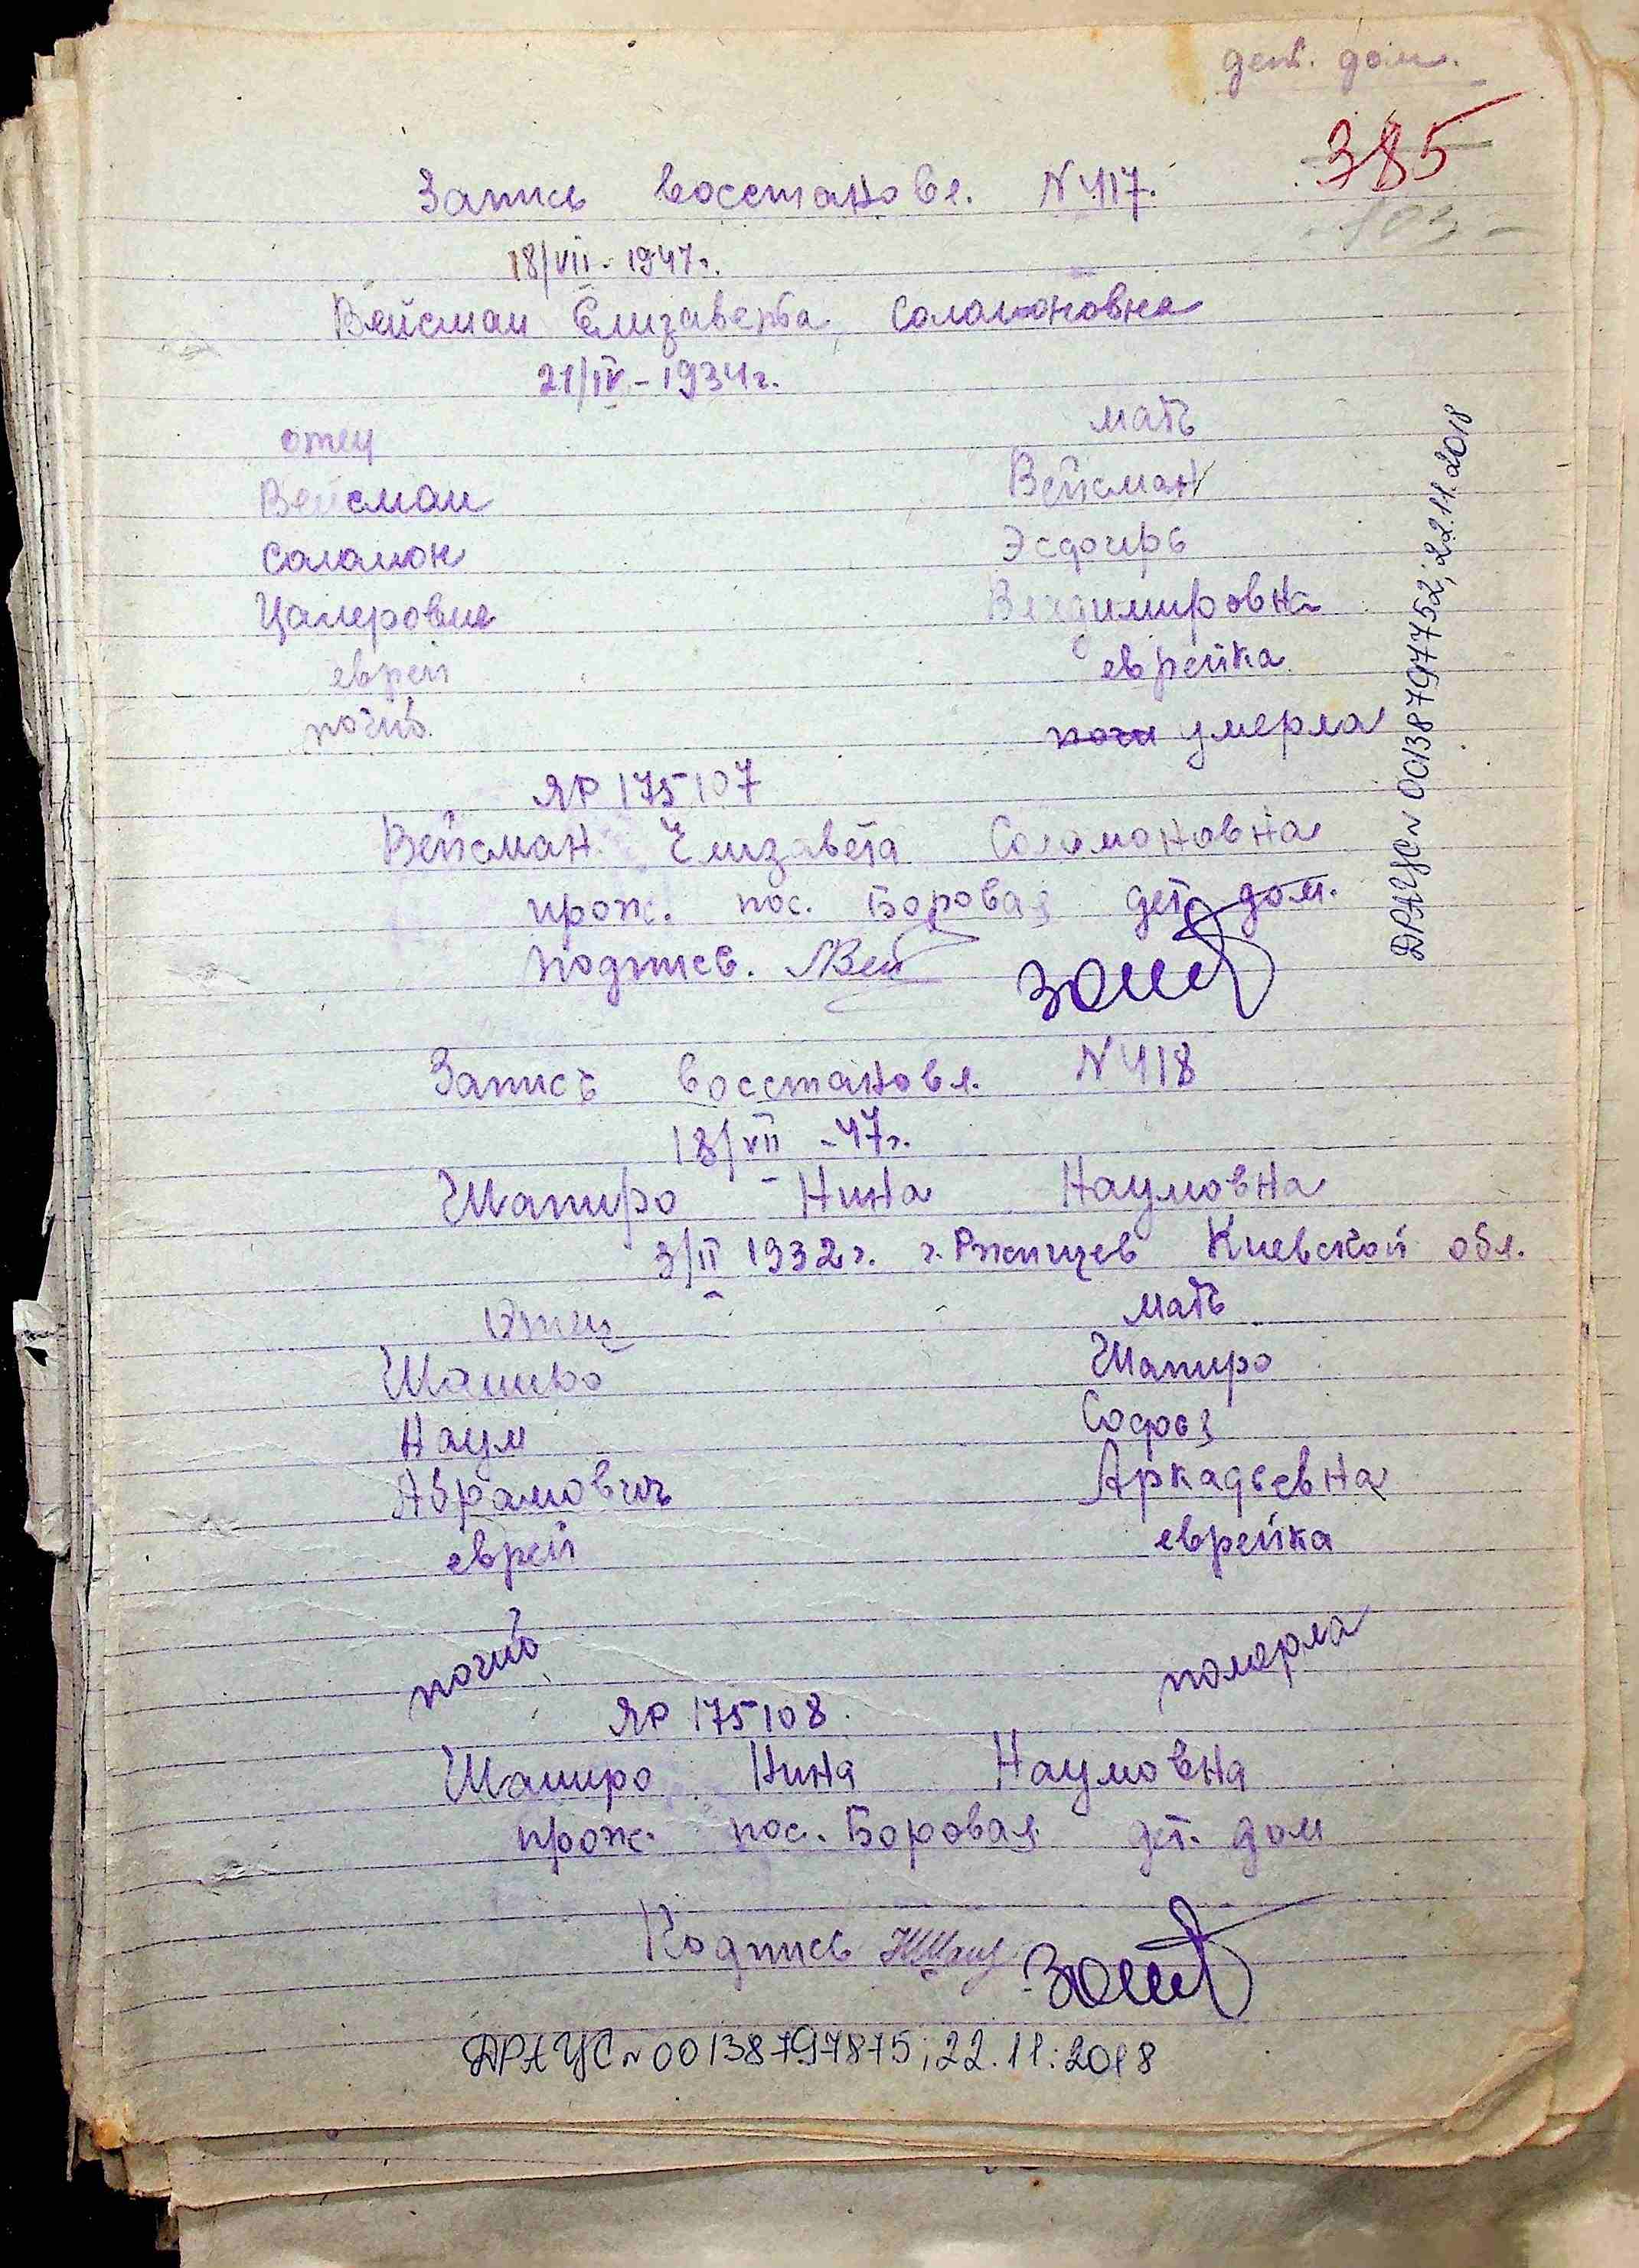 дет. дом.
385
Запись восстановл. N 417.
18/VII - 1947г.
Вейсман Елизавета Соломоновна
21/IV - 1934г.
отец мать
Вейсман Вейсман
Соломон Эсфирь
Владимировна
еврей еврейка
погиб. поги умерла
ЯР 175107
Вейсман Елизавета Соломоновна
прож. пос. Боровая дет. дом.
подпись. ЛВей
ДРАЦС N 00138797752; 22.11.2018
Запись восстановл. N 418
18/VII - 47г.
Шапиро Нина Наумовна
3/II 1932г. г. Ржищев Киевской обл.
Отец мать
Шапиро Шапиро
Наум Софья
Абрамович Аркадьевна
еврей еврейка
погиб померла
ЯР 175108.
Шапиро Нина Наумовна
прож. пос. Боровая дет. дом
Подпись
ДРАЦС N 00138797875; 22.11.2018